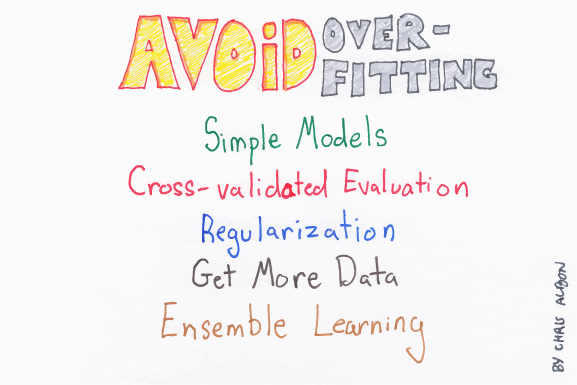 AVOiD OVER-
FITTING
Simple Models
Cross-validated Evaluation
Regularization
Get More Data
Ensemble Learning
BY CHRIS ALBON